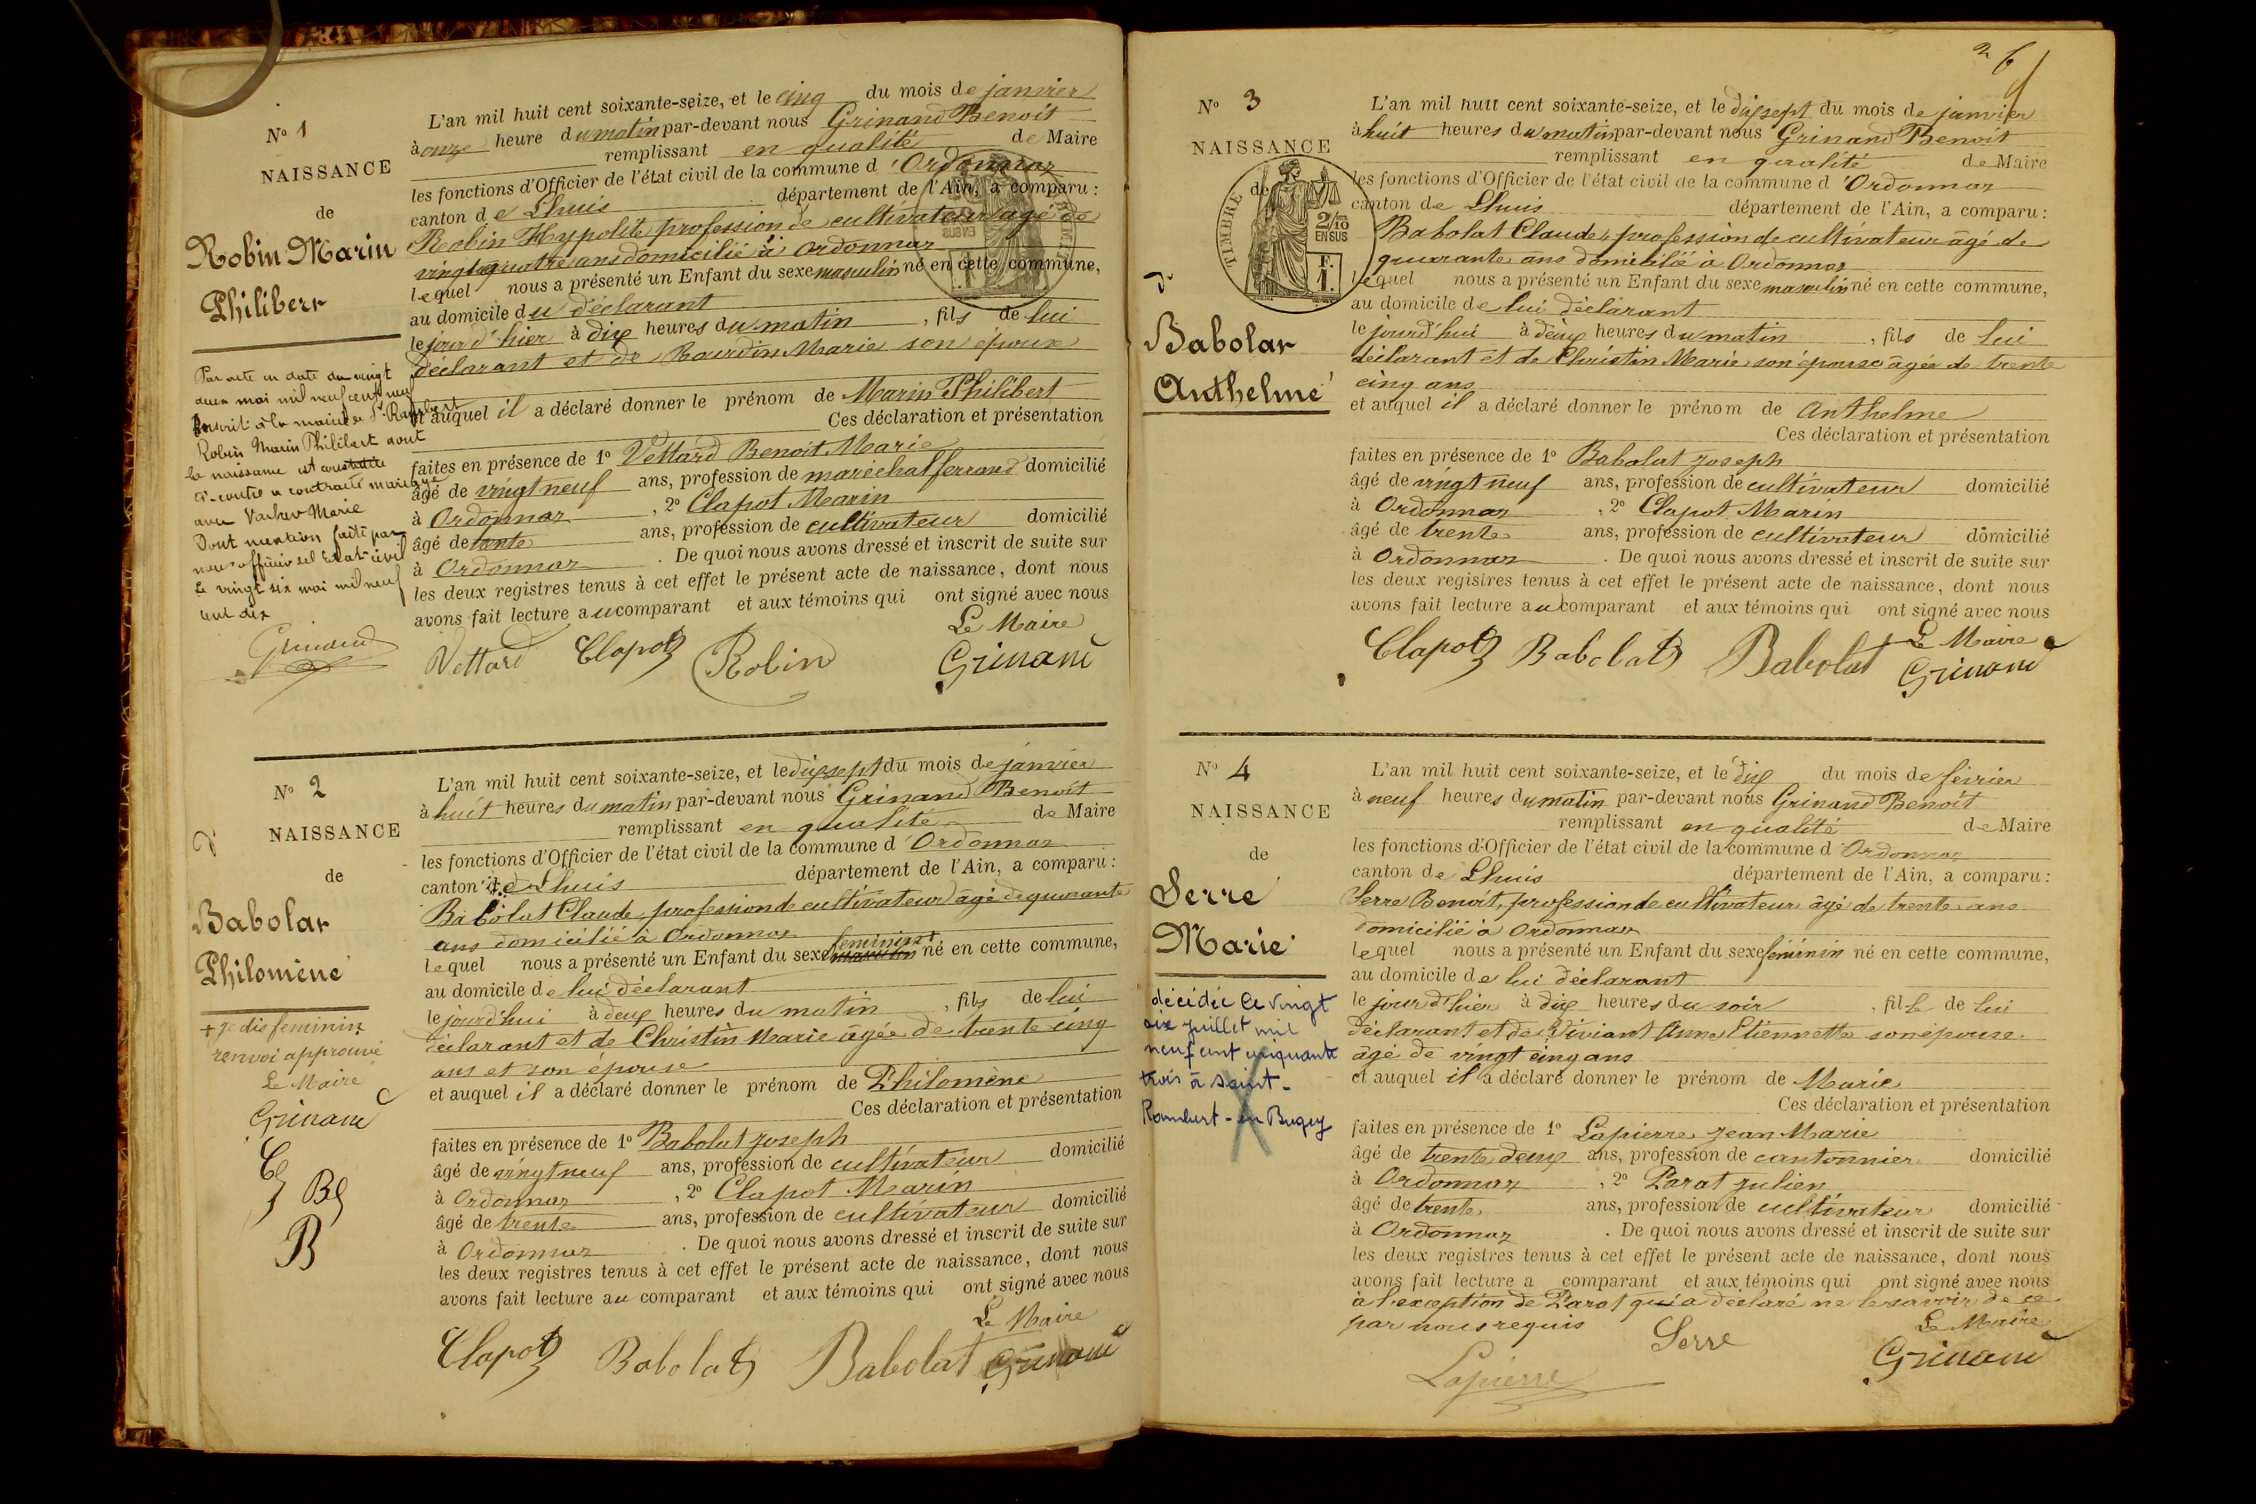 N° 1
NAISSANCE
de
Robin Marin
Philibert
Par acte en date du vingt
deux mai mil neuf cent neuf
inscrit à la mairie de St Rambert
Robin Marin Philibert dont
la naissance est constatée
ci-contre a contracté mariage
avec Marie
Dont mention faite par
nous officier de l'état civil
Le vingt six mai mil neuf
cent dix
Grinand
L'an mil huit cent soixante-seize, et le cinq du mois de janvier
à onze heure du matin par-devant nous Grinand Benoit
remplissant en qualité de Maire
les fonctions d'Officier de l'état civil de la commune d'Ordonnaz
canton de Lhuis département de l'Ain, a comparu :
Robin Hypolite profession de cultivateur agé de
vingt quatre ans domicilié à Ordonnaz
lequel nous a présenté un Enfant du sexe masculin né en cette commune,
au domicile du déclarant
le jour d'hier à dix heures du matin , fils de lui
déclarant et de Bourdin Marie son épouse
et auquel il a déclaré donner le prénom de Marin Philibert
Ces déclaration et présentation
faites en présence de 1° Vettard Benoit Marie
âgé de vingt neuf ans, profession de maréchal ferrand domicilié
à Ordonnaz , 2° Clapot Marin
âgé de trente ans, profession de cultivateur domicilié
à Ordonnaz . De quoi nous avons dressé et inscrit de suite sur
les deux registres tenus à cet effet le présent acte de naissance, dont nous
avons fait lecture au comparant et aux témoins qui ont signé avec nous
Le Maire
Vettard Clapot Robin Grinand
N° 2
NAISSANCE
de
Babolat
Philomène
+ je dis feminin
renvoi approuvé
Le Maire
Grinand
C
BJ
B
L'an mil huit cent soixante-seize, et le dix sept du mois de janvier
à huit heures du matin par-devant nous Grinand Benoit
remplissant en qualité de Maire
les fonctions d'Officier de l'état civil de la commune d'Ordonnaz
canton de Lhuis département de l'Ain, a comparu :
Babolat Claude, profession de cultivateur âgé de quarante
ans domicilié à Ordonnaz
feminin +
lequel nous a présenté un Enfant du sexe masculin né en cette commune,
au domicile de lui déclarant
le jourd'hui à deux heures du matin , fils de lui
déclarant et de Christin Marie âgée de trente cinq
ans et son épouse
et auquel il a déclaré donner le prénom de Philomène
Ces déclaration et présentation
faites en présence de 1° Babolat Joseph
âgé de vingt neuf ans, profession de cultivateur domicilié
à Ordonnaz , 2° Clapot Marin
âgé de trente ans, profession de cultivateur domicilié
à Ordonnaz . De quoi nous avons dressé et inscrit de suite sur
les deux registres tenus à cet effet le présent acte de naissance, dont nous
avons fait lecture au comparant et aux témoins qui ont signé avec nous
Le Maire
Clapot Babolat Babolat Grinand
N° 3
NAISSANCE
de
TIMBRE
2/10
EN SUS
F.
1.
Babolat
Anthelme
L'an mil huit cent soixante-seize, et le dix sept du mois de janvier
à huit heures du matin par-devant nous Grinand Benoit
remplissant en qualité de Maire
les fonctions d'Officier de l'état civil de la commune d'Ordonnaz
canton de Lhuis département de l'Ain, a comparu :
Babolat Claude, profession de cultivateur âgé de
quarante ans domicilié à Ordonnaz
lequel nous a présenté un Enfant du sexe masculin né en cette commune,
au domicile de lui déclarant
le jourd'hui à deux heures du matin , fils de lui
déclarant et de Christin Marie son épouse âgée de trente
cinq ans
et auquel il a déclaré donner le prénom de Anthelme
Ces déclaration et présentation
faites en présence de 1° Babolat Joseph
âgé de vingt neuf ans, profession de cultivateur domicilié
à Ordonnaz , 2° Clapot Marin
âgé de trente ans, profession de cultivateur domicilié
à Ordonnaz . De quoi nous avons dressé et inscrit de suite sur
les deux registres tenus à cet effet le présent acte de naissance, dont nous
avons fait lecture au comparant et aux témoins qui ont signé avec nous
Le Maire
Clapot Babolat Babolat Grinand
N° 4
NAISSANCE
de
Serre
Marie
décédée le vingt
six juillet mil
neuf cent cinquante
trois à Saint-
Rambert-en Bugey
L'an mil huit cent soixante-seize, et le dix du mois de février
à neuf heures du matin par-devant nous Grinand Benoit
remplissant en qualité de Maire
les fonctions d'Officier de l'état civil de la commune d'Ordonnaz
canton de Lhuis département de l'Ain, a comparu :
Serre Benoit, profession de cultivateur âgé de trente ans
domicilié à Ordonnaz
lequel nous a présenté un Enfant du sexe féminin né en cette commune,
au domicile de lui déclarant
le jour d'hier à dix heures du soir , fille de lui
déclarant et de Viviant Anne Etiennette son épouse
âgé de vingt cinq ans
et auquel il a déclaré donner le prénom de Marie
Ces déclaration et présentation
faites en présence de 1° Lapierre Jean Marie
âgé de trente deux ans, profession de cantonnier domicilié
à Ordonnaz , 2° Parat Julien
âgé de trente ans, profession de cultivateur domicilié
à Ordonnaz . De quoi nous avons dressé et inscrit de suite sur
les deux registres tenus à cet effet le présent acte de naissance, dont nous
avons fait lecture a comparant et aux témoins qui ont signé avec nous
à l'exception de Parat qui a déclaré ne le savoir de ce
par nous requis
Le Maire
Serre Grinand
Lapierre